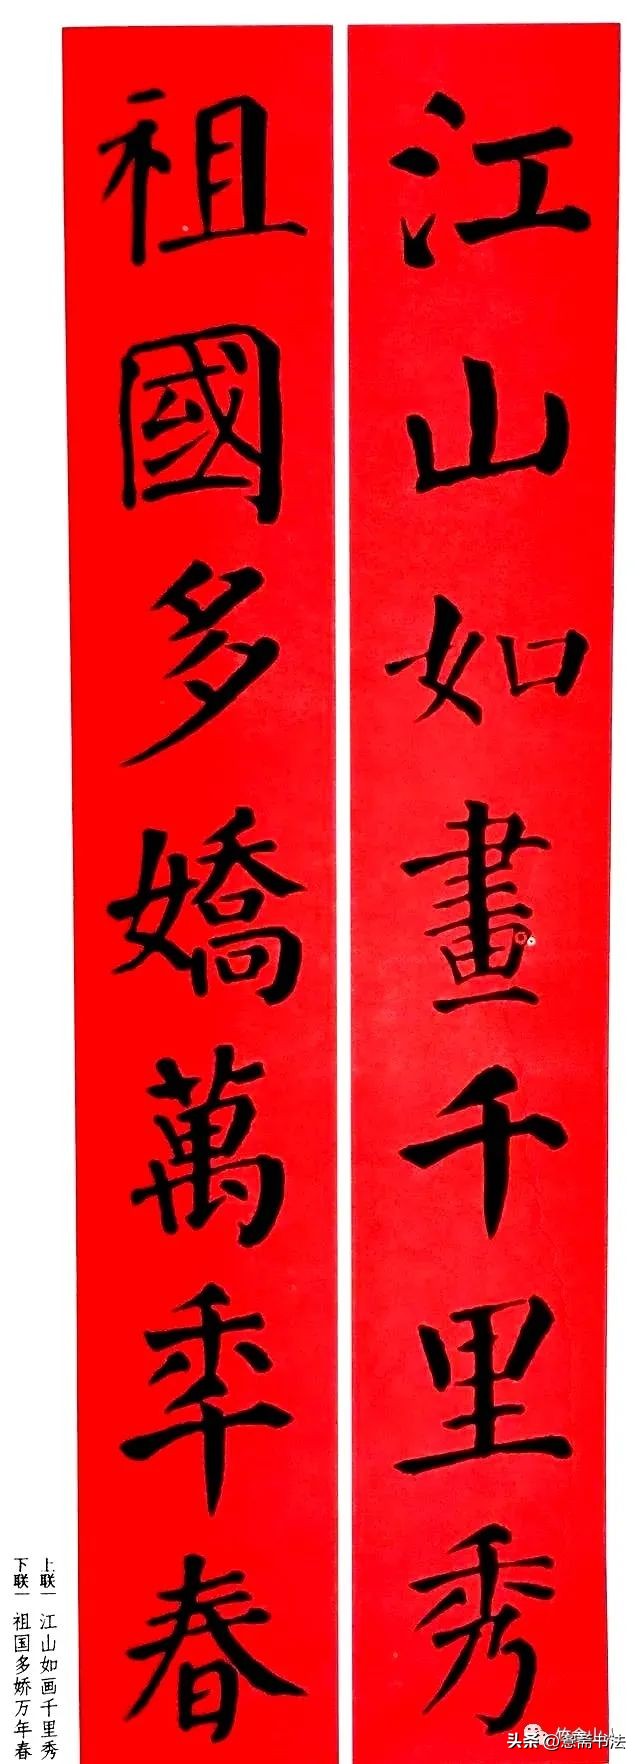 江山如畫千里秀
祖國多嬌萬年春
上联 江山如画千里秀
下联 祖国多娇万年春
头条@意斋书法